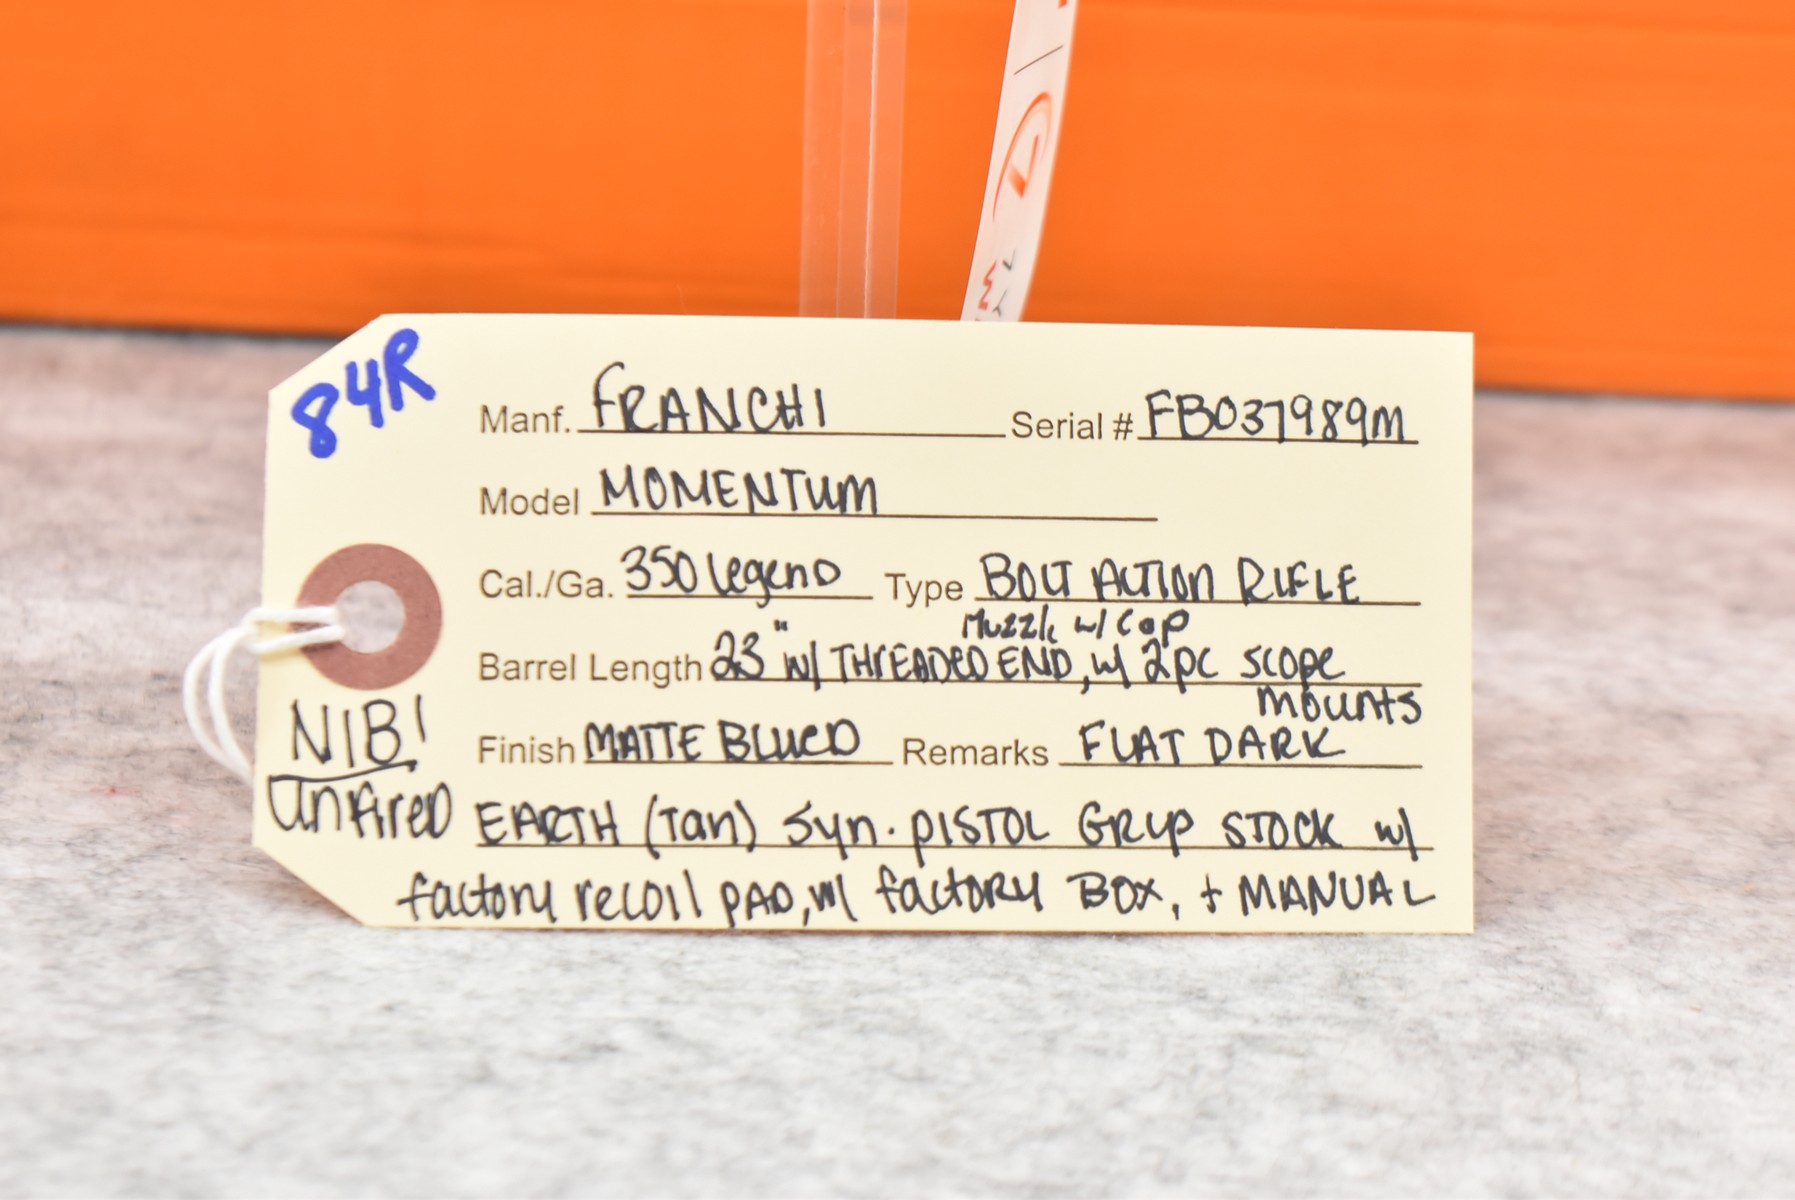 84R
Manf. FRANCHI Serial # FB037989M
Model MOMENTUM
Cal./Ga. 350 Legend Type BOLT ACTION RIFLE
Muzzle w/ Cap
Barrel Length 23" w/ THREADED END, w/ 2pc scope
mounts
Finish MATTE BLUED Remarks FLAT DARK
NIB!
Unfired
EARTH (Tan) Syn. PISTOL GRIP STOCK w/
factory recoil PAD, w/ factory BOX, + MANUAL